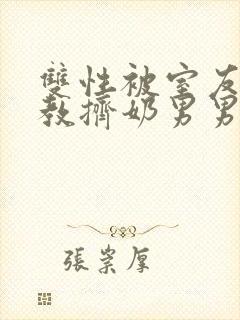 雙性被室友
教擠奶男男
張崇厚